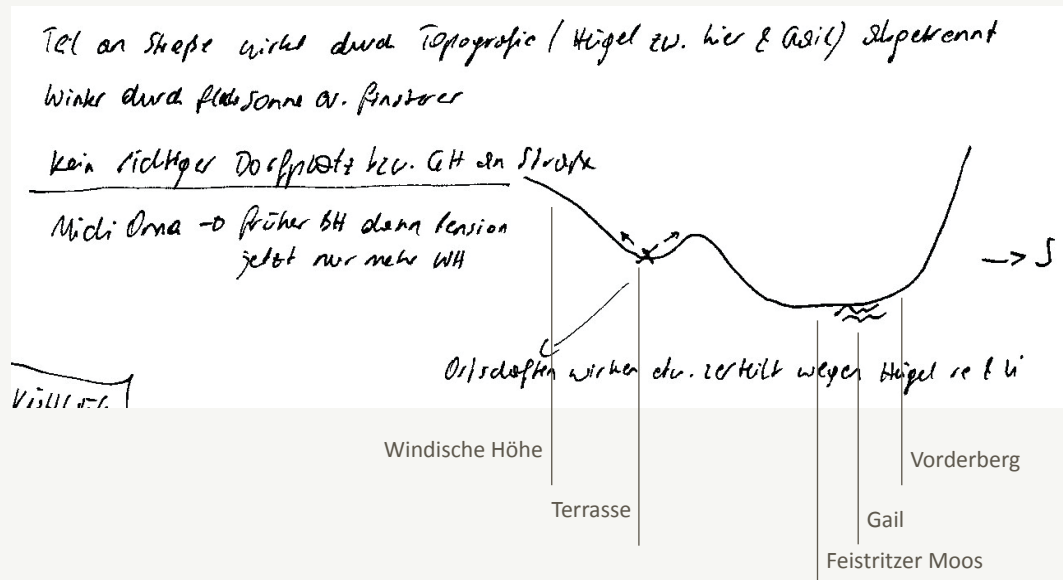 Teil an Straße wirkt durch Topografie (Hügel zw. hier & Gail) abgetrennt
Winter durch flache Sonne ev. finsterer
Kein richtiger Dorfplatz bzw. GH an Straße
Michi Oma → früher GH dann Pension
jetzt nur mehr WH
→ S
Ortschaften wirken etw. zerteilt wegen Hügel re & li
Windische Höhe
Vorderberg
Terrasse
Gail
Feistritzer Moos